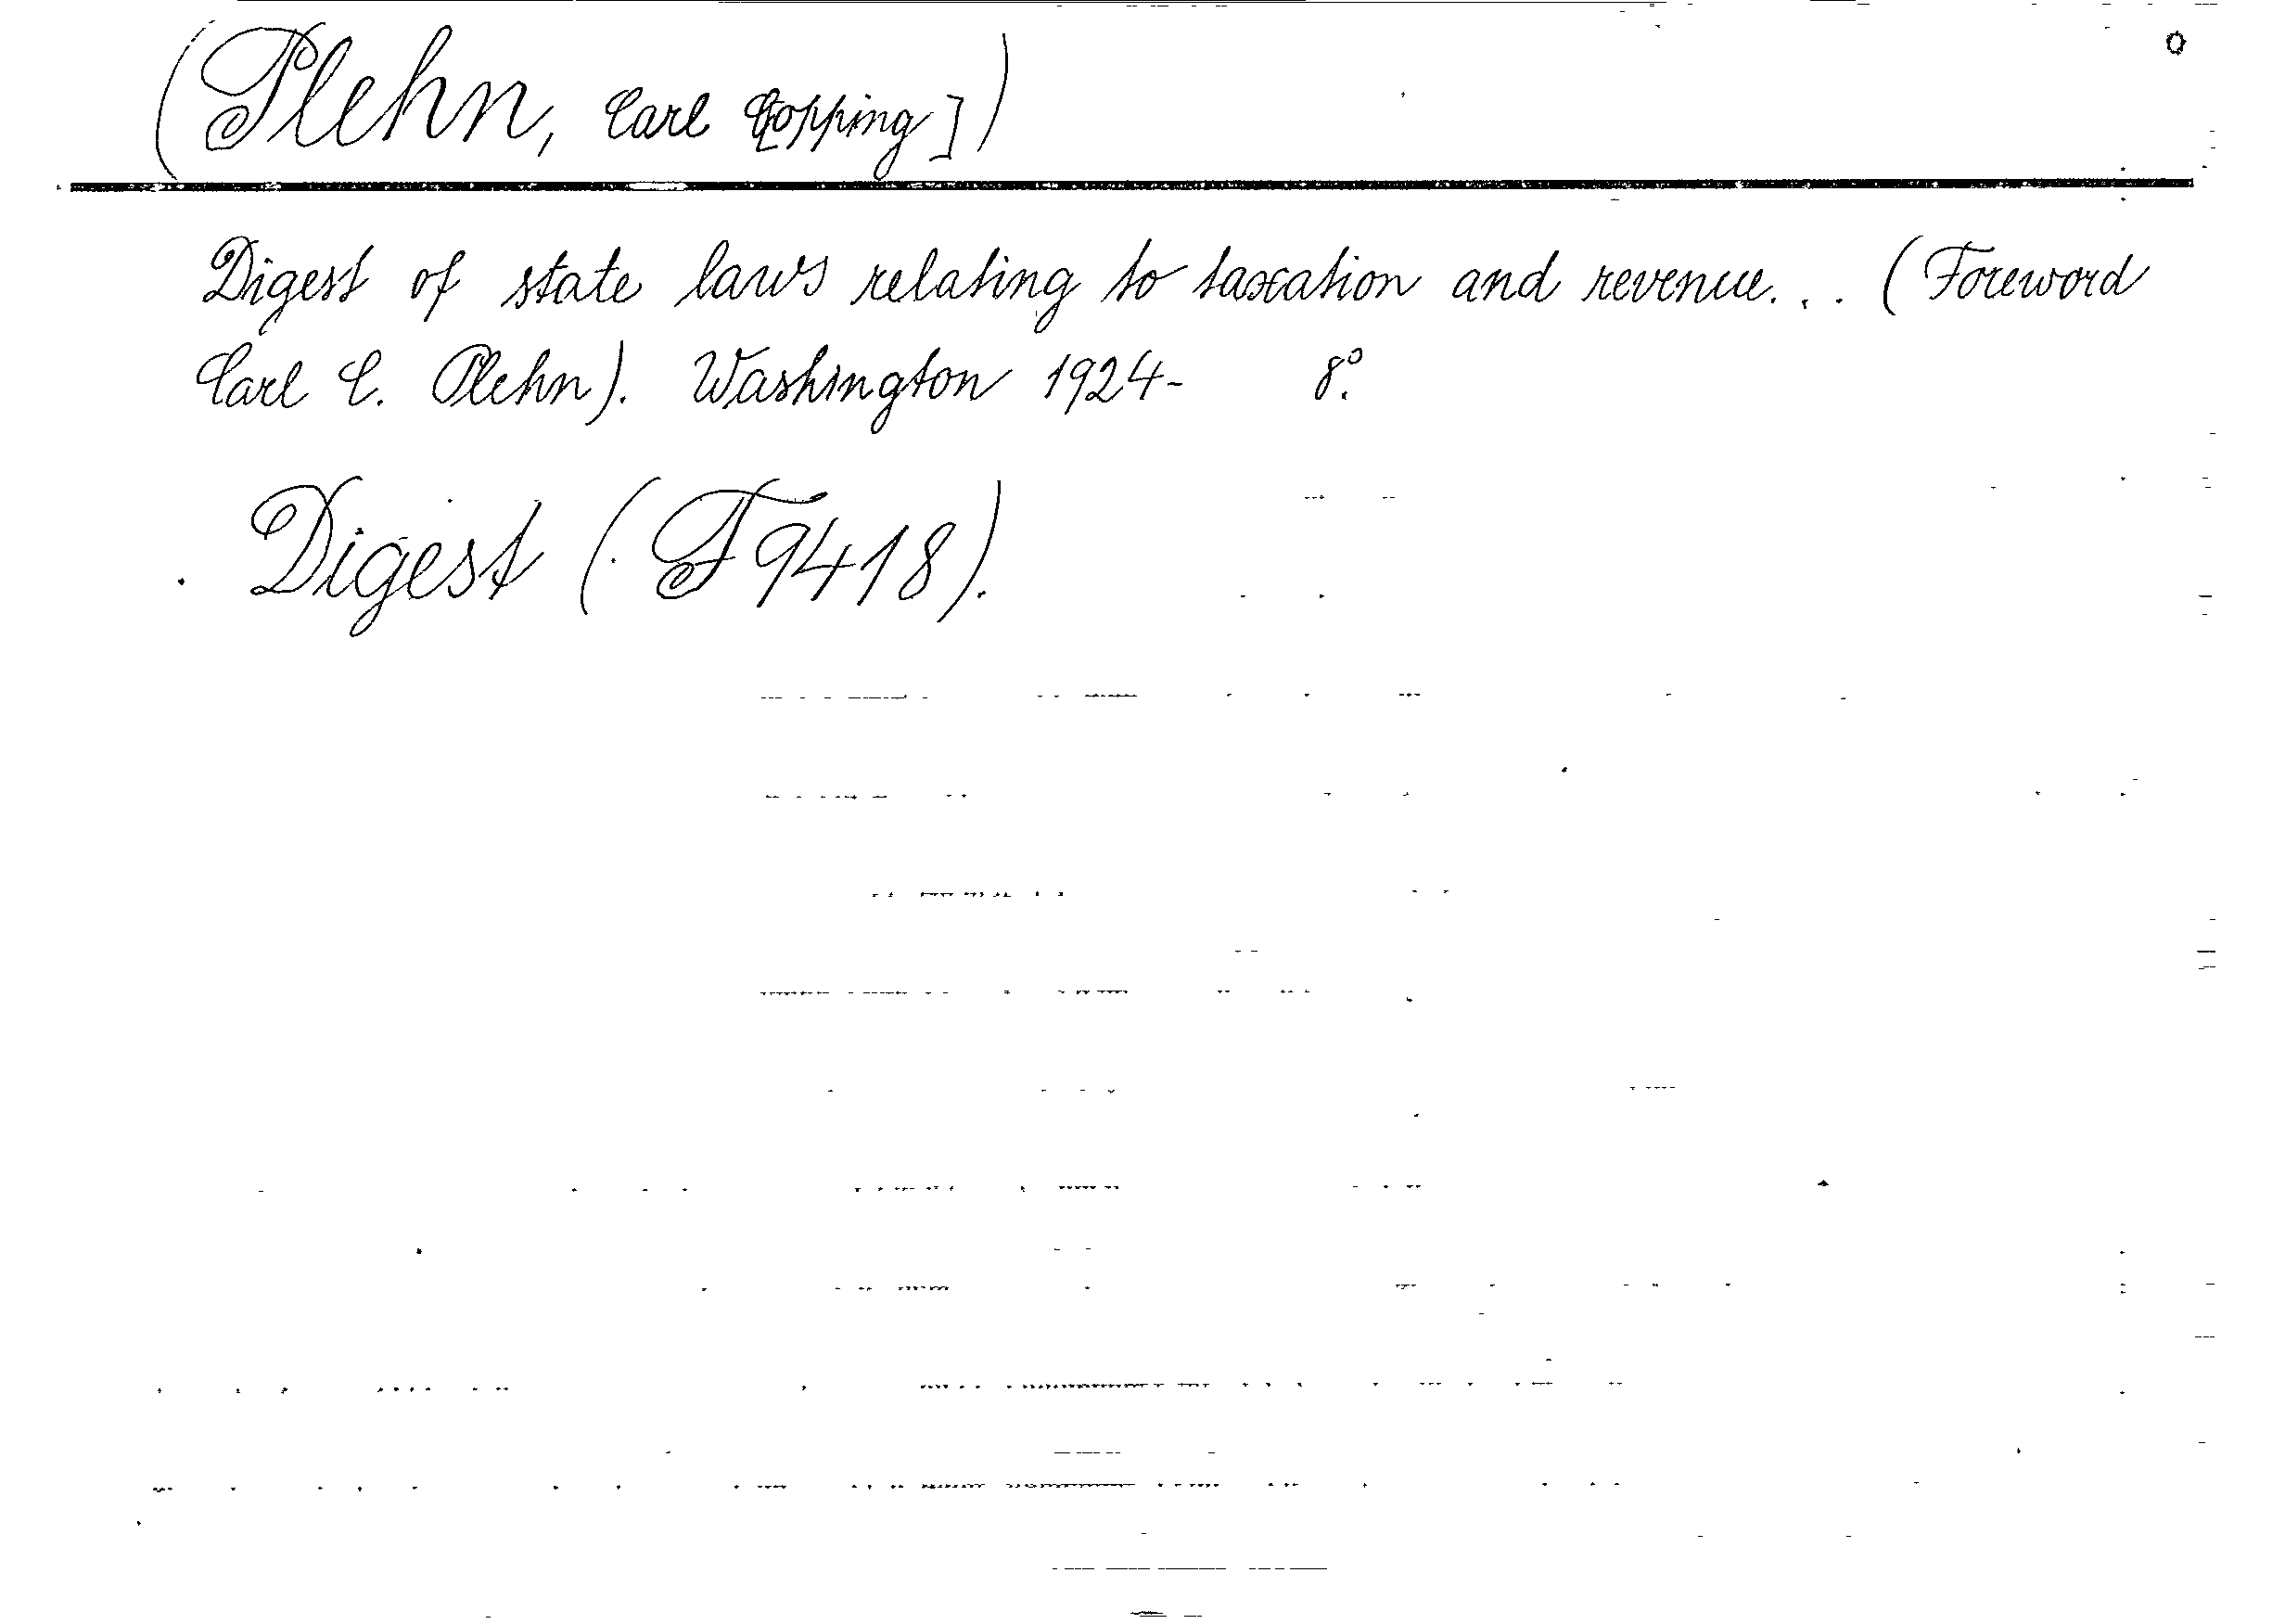 (Plehn, Carl C[opping])
Digest of state laws relating to taxation and revenue... (Foreword
Carl C. Plehn). Washington 1924- 8°.
Digest (F 9418).